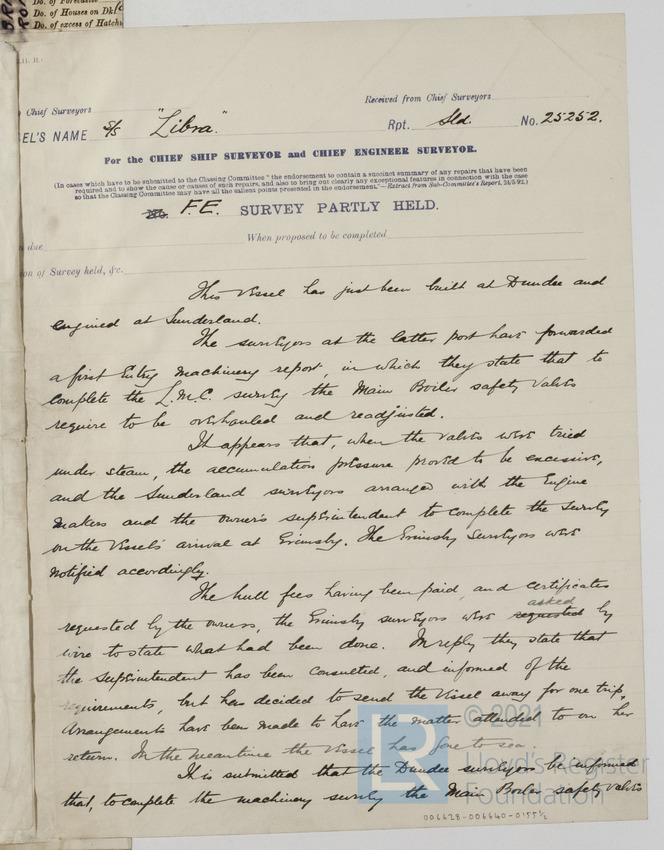 Do. of Forecastle
Do. of Houses on Dk
Do. of excess of Hatch
Chief Surveyors
Received from Chief Surveyors
SEL'S NAME S/S "Libra."
Rpt. Sld. No. 25252.
For the CHIEF SHIP SURVEYOR and CHIEF ENGINEER SURVEYOR.
(In cases which have to be submitted to the Classing Committee "the endorsement to contain a succinct summary of any repairs that have been
required and to show the cause or causes of such repairs, and also to bring out clearly any exceptional features in connection with the case
so that the Classing Committee may have all the salient points presented in the endorsement."—Extract from Sub-Committee's Report, 24/5/92.)
F.E. SURVEY PARTLY HELD.
due
When proposed to be completed
on of Survey held, &c.
This vessel has just been built at Dundee and
engined at Sunderland.
The surveyors at the latter port have forwarded
a first Entry machinery report, in which they state that to
complete the L.M.C. survey the Main Boiler safety valves
require to be overhauled and readjusted.
It appears that, when the valves were tried
under steam, the accumulation pressure proved to be excessive,
and the Sunderland surveyors arranged with the Engine
Makers and the owner's superintendent to complete the survey
on the vessel's arrival at Grimsby. The Grimsby surveyors were
notified accordingly.
The hull fees having been paid, and certificates
requested by the owners, the Grimsby surveyors were requested asked by
wire to state what had been done. In reply they state that
the superintendent has been consulted, and informed of the
requirements, but has decided to send the vessel away for one trip.
Arrangements have been made to have the matter attended to on her
return. In the meantime the vessel has gone to sea.
It is submitted that the Dundee surveyors be informed
that, to complete the machinery survey the Main Boiler safety valves
© 2021
LR
Lloyd's Register
Foundation
006628-006640-0155½